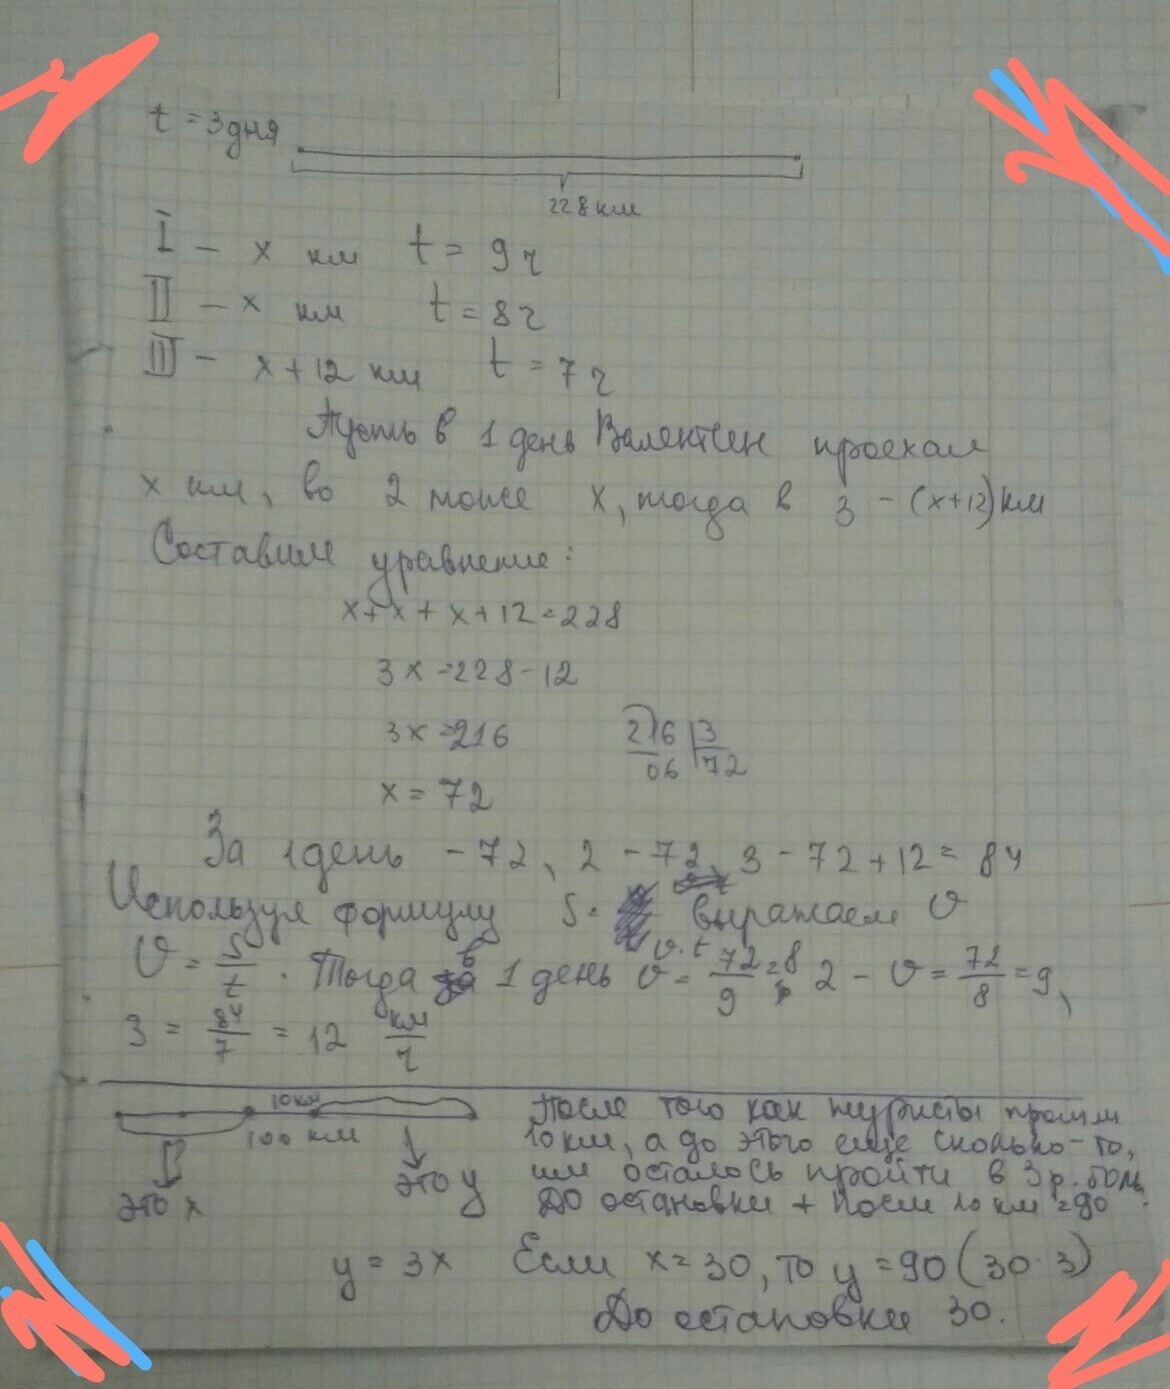 t = 3 дня
228 км
I – x км t = 9 ч
II – x км t = 8 ч
III – x + 12 км t = 7 ч
Пусть в 1 день Валентин проехал
x км, во 2 тоже x, тогда в 3 – (x+12) км
Составим уравнение:
x + x + x + 12 = 228
3x = 228 - 12
3x = 216
216 | 3
06 72
x = 72
За 1 день – 72, 2 – 72, 3 – 72 + 12 = 84
Используя формулу S = v · t выражаем v
v = S/t . Тогда в 1 день v = 72/9 = 8, 2 – v = 72/8 = 9,
3 = 84/7 = 12 км/ч
10км
100 км
это x
это y
После того как туристы прошли
10 км, а до этого еще сколько-то,
им осталось пройти в 3 р. больш.
До остановки + после 10 км = 90
y = 3x Если x = 30, то y = 90 (30 · 3)
До остановки 30.